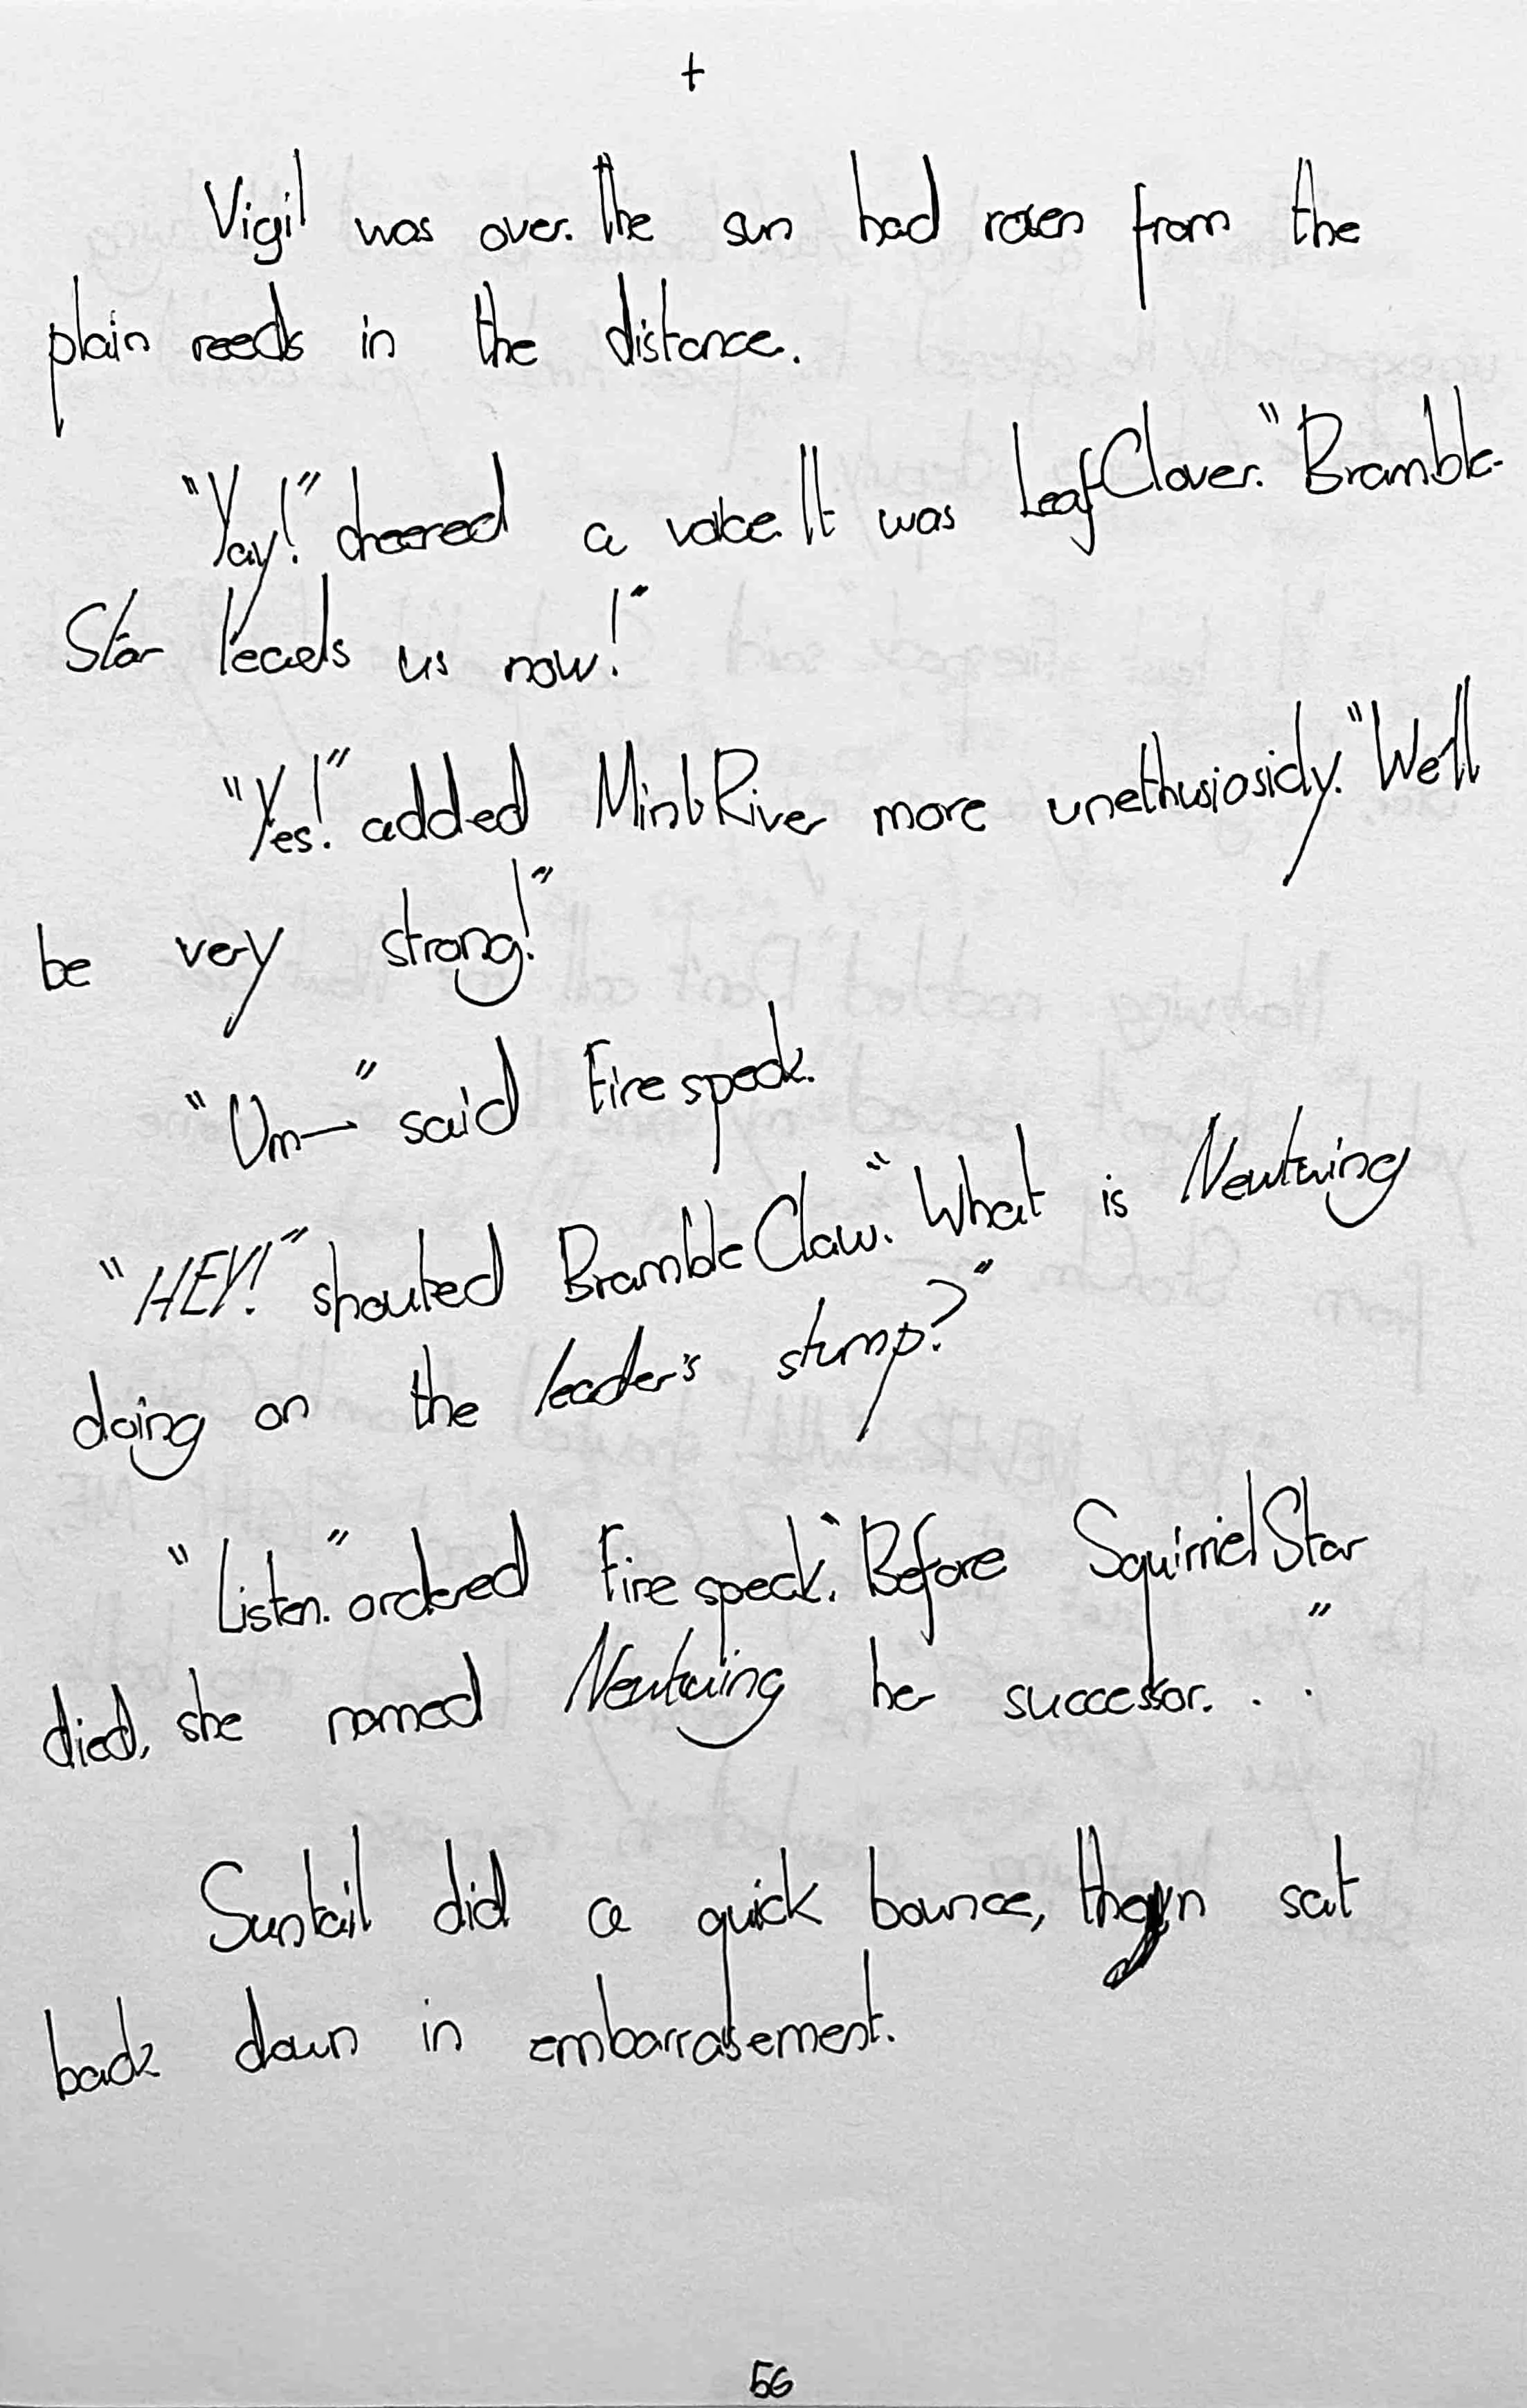 +
Vigil was over. The sun had rosen from the
plain reeds in the distance.
"Yay!" cheered a voice. It was LeafClover. "Bramble-
Star leads us now!"
"Yes!" added MintRiver more unethusiasicly. "We'll
be very strong!"
"Um—" said Firespeck.
"HEY!" shouted BrambleClaw. "What is Newtwing
doing on the leader's stump?"
"Listen." ordered Firespeck. "Before SquirrelStar
died, she named Newtwing her successor. . ."
Suntail did a quick bounce, then sat
back down in embarrasement.
56